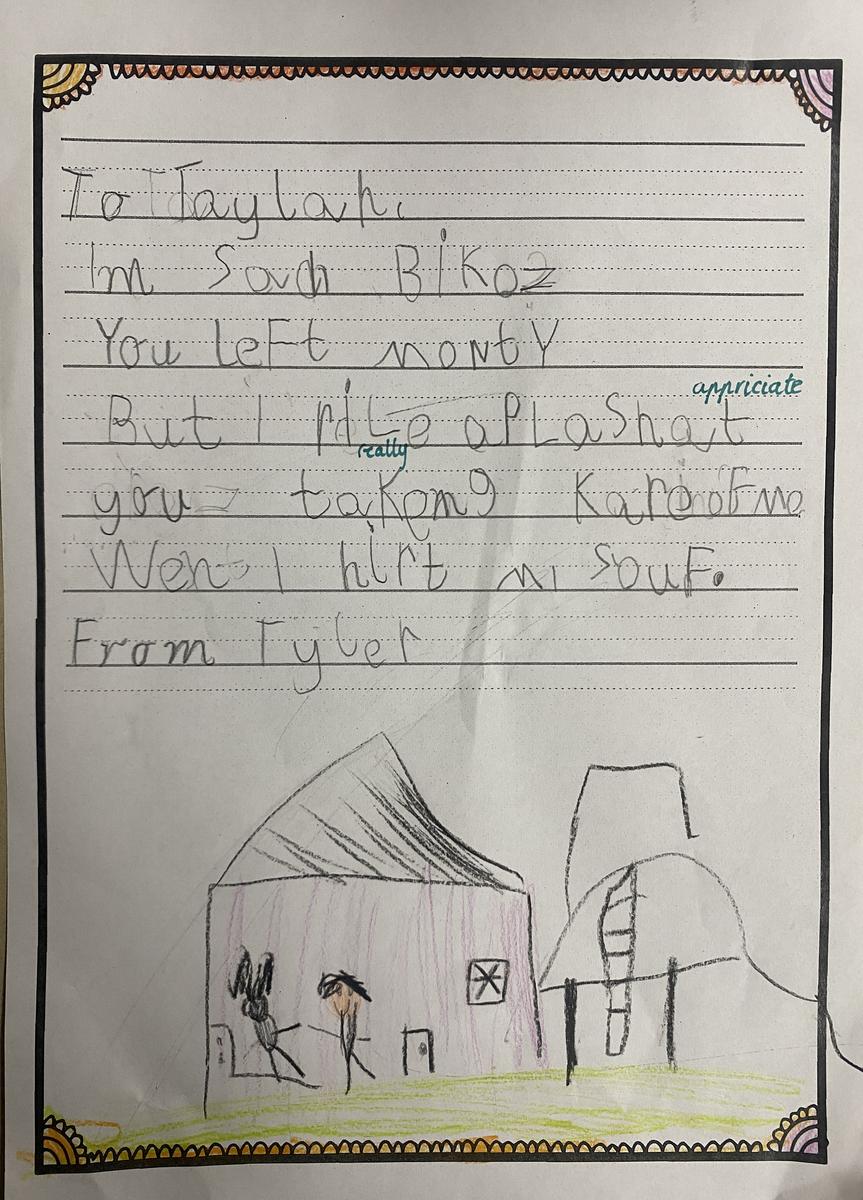 To Taylah.
Im Sadh BiKoz
You LeFt montY
appriciate
But I riLe aPLaShat
really
you takeng KareoF me
Wen I hirt mi SouF.
From Tyler